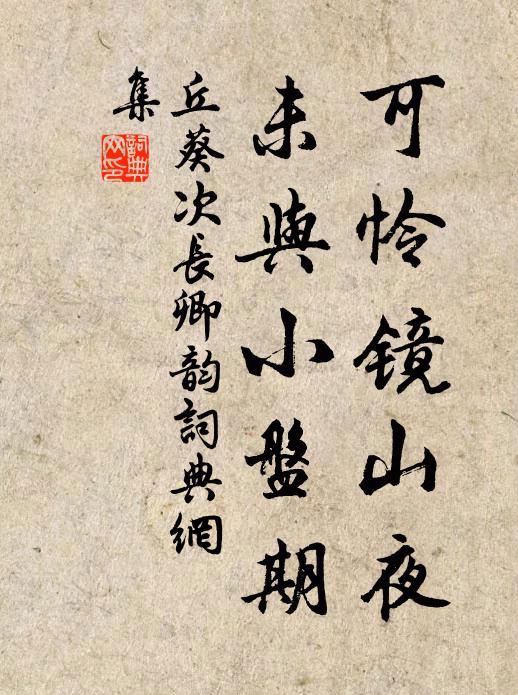 可怜镜山夜
未與小盤期
丘葵次長卿韵詞典網
集
詞典
网印